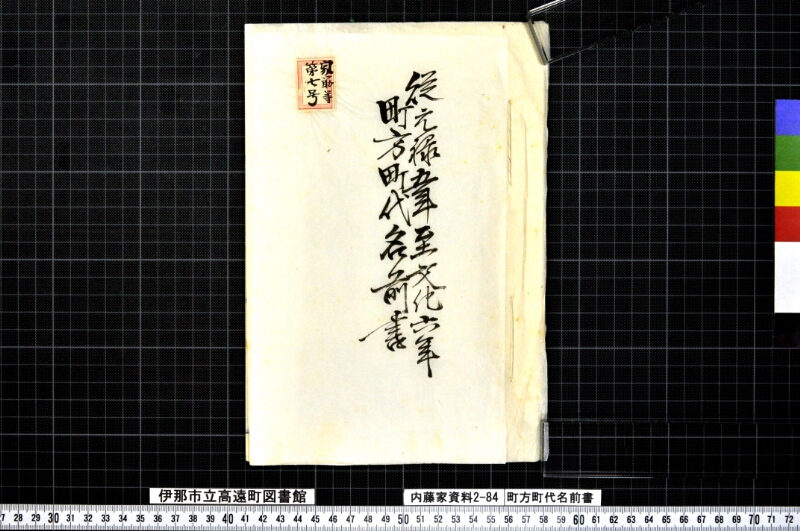 従元禄五年至文化六年
町方町代名前書
第七号
伊那市立高遠町図書館
内藤家資料2-84 町方町代名前書
27 28 29 30 31 32 33 34 35 36 37 38 39 40 41 42 43 44 45 46 47 48 49 50 51 52 53 54 55 56 57 58 59 60 61 62 63 64 65 66 67 68 69 70 71 72